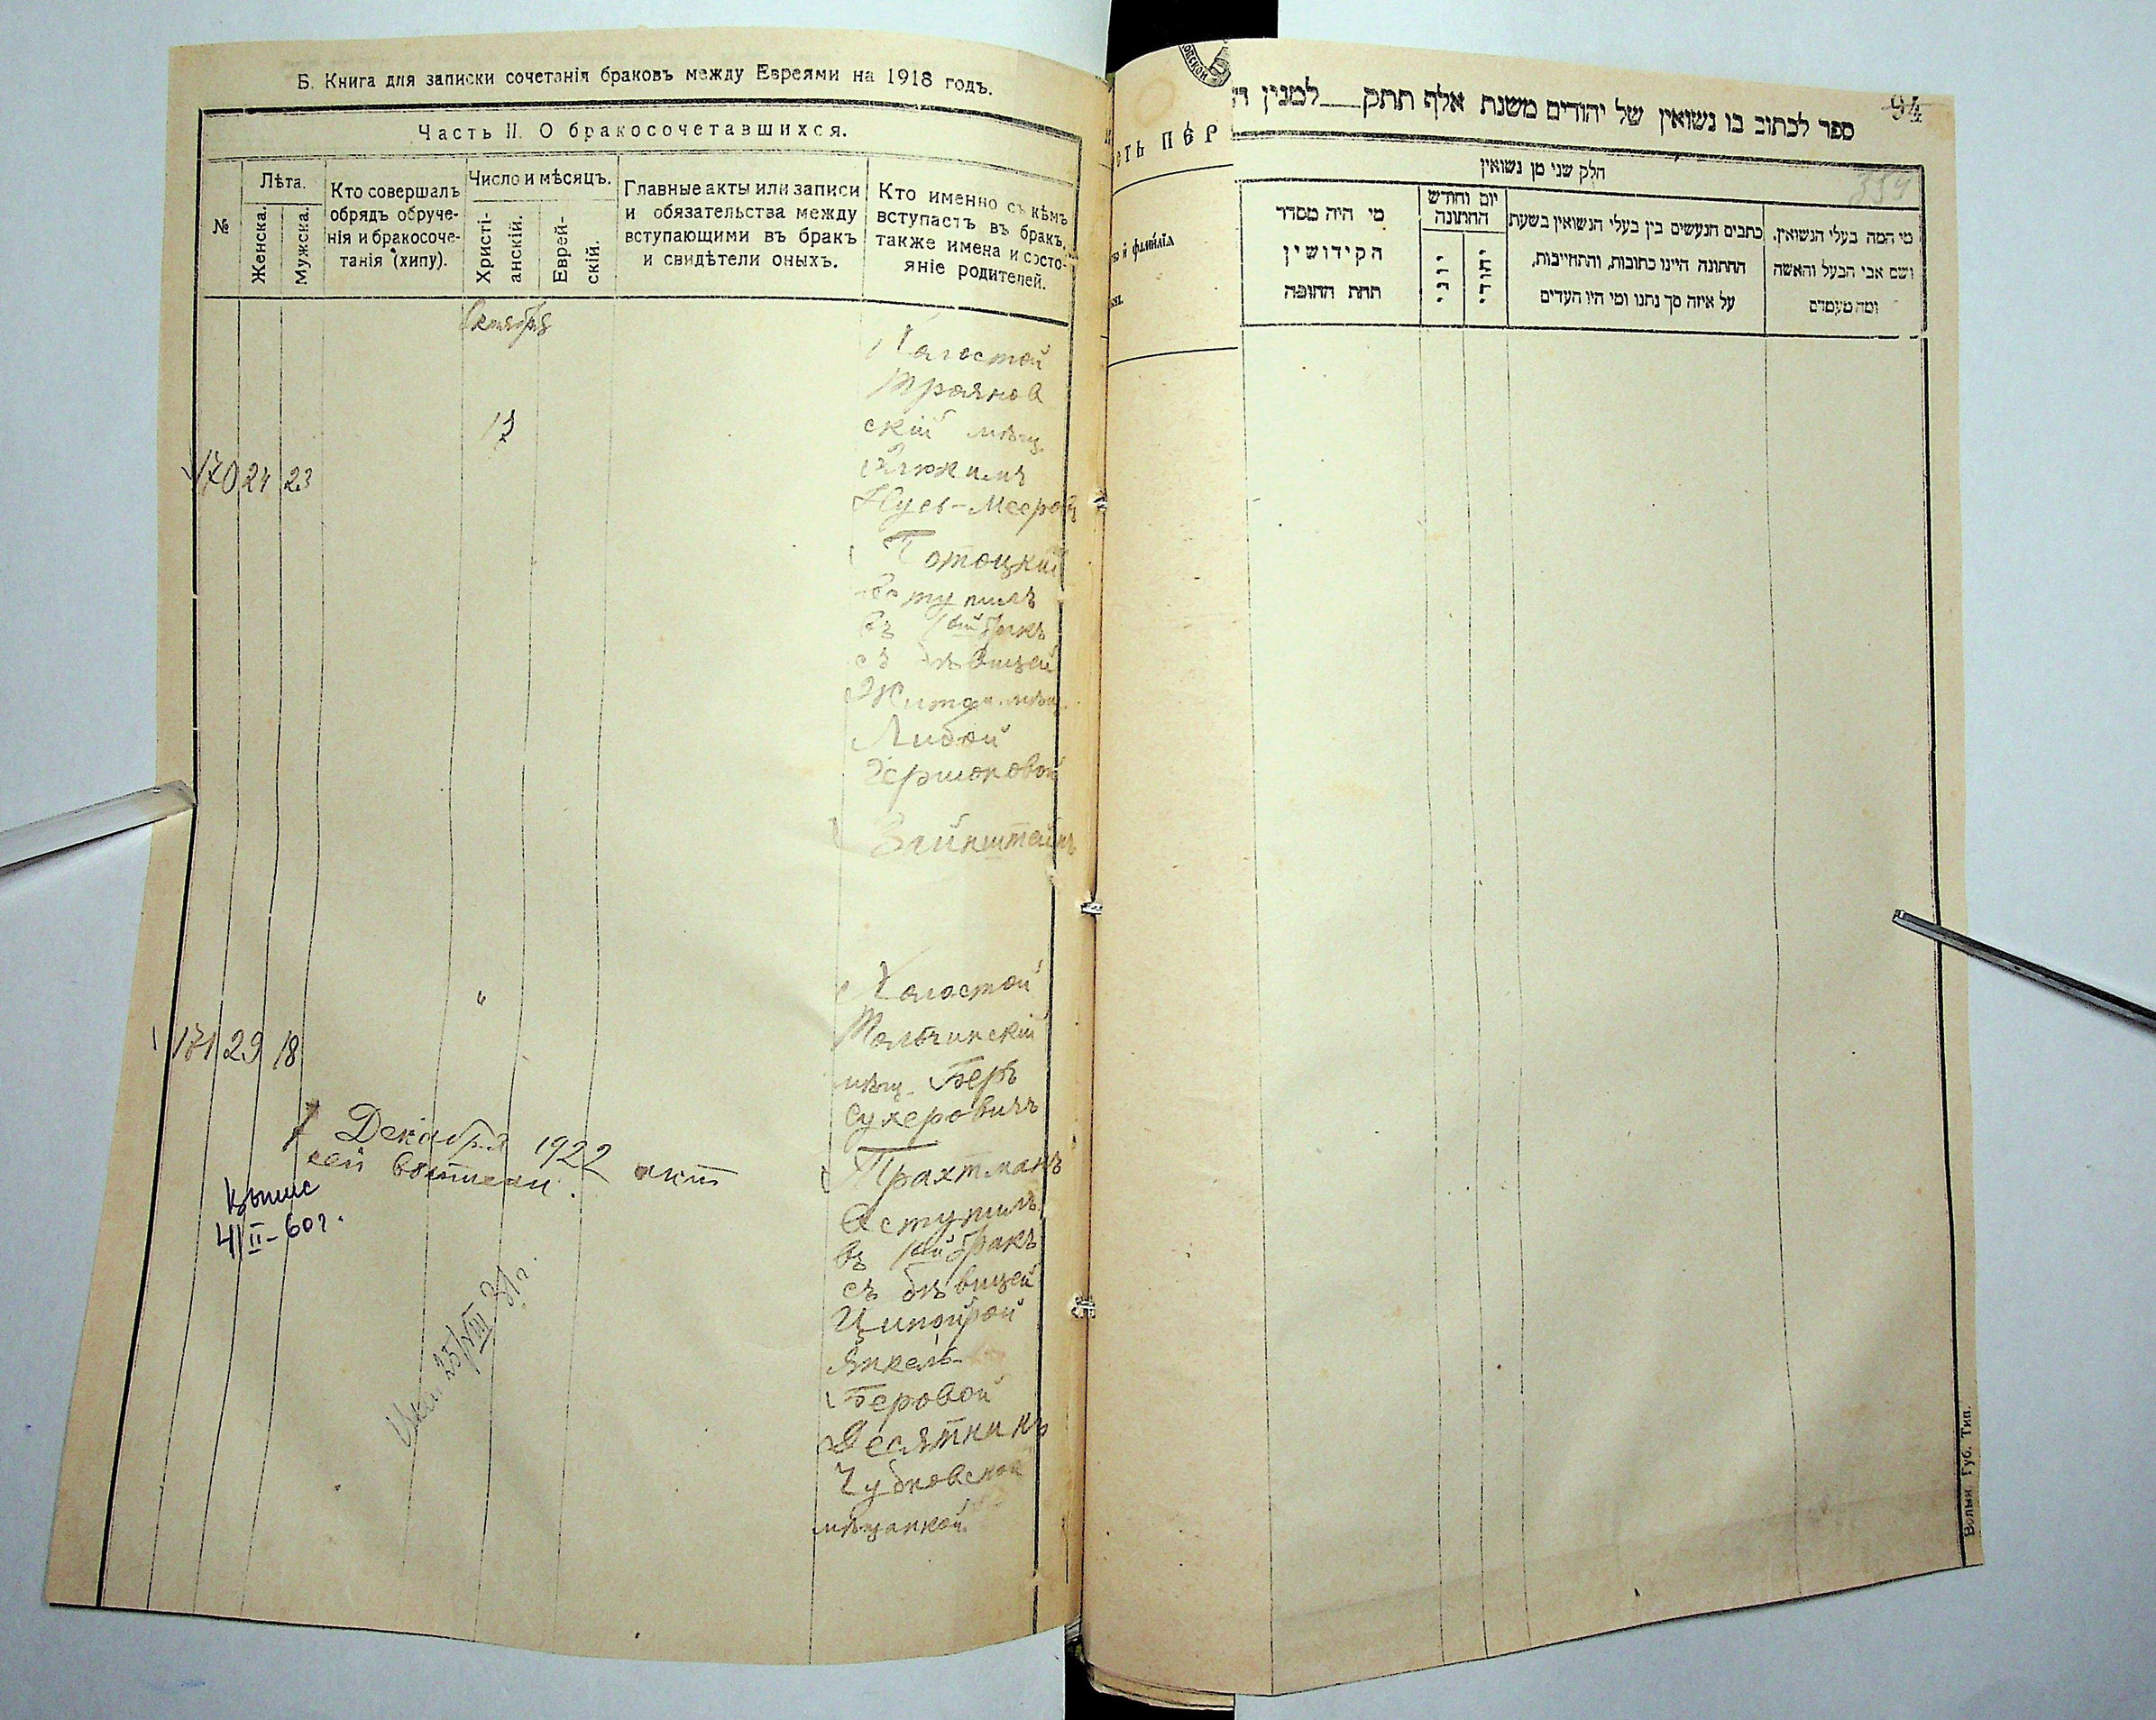 Б. Книга для записки сочетанія браковъ между Евреями на 1918 годъ.
Часть II. О бракосочетавшихся.
№
Лѣта.
Женска.
Мужска.
Кто совершалъ
обрядъ обруче-
нія и бракосоче-
танія (хипу).
Число и мѣсяцъ.
Христі-
анскій.
Еврей-
скій.
Главные акты или записи
и обязательства между
вступающими въ бракъ
и свидѣтели оныхъ.
Кто именно съ кѣмъ
вступаетъ въ бракъ,
также имена и состо-
яніе родителей.
Октября
170 24 23
Холостой
Трояновскій мѣщ.
Нусь-Меерова
Потоцкій
вступилъ
въ 1ый бракъ
съ дѣвицей
Житом. мѣщ.
Либой
Гершоновой
171 29 18
"
Холостой
Тольчинскій
мѣщ. Беръ
Сухеровичъ
Трахтманъ
вступилъ
въ 1ый бракъ
съ дѣвицей
Ципойрой
Янкель-
Беровой
Десятникъ
Чудновской
мѣщанкой
Декабря 1922 актъ
4/II-60г.
25/VIII 31 г.
94
354
ספר לכתוב בו נשואין של יהודים משנת אלף תתק למנין
חלק שני מן נשואין
מי היה מסדר
הקידושין
תחת החופה
יום וחודש
החתונה
יוני
יהודי
כתבים הנעשים בין בעלי הנשואין בשעת
החתונה היינו כתובות, והתחייבות,
על איזה סך נתנו ומי היו העדים
מי המה בעלי הנשואין,
ושם אבי הבעל והאשה
ומה מעמדם
и фамилія
Волын. Губ. Тип.